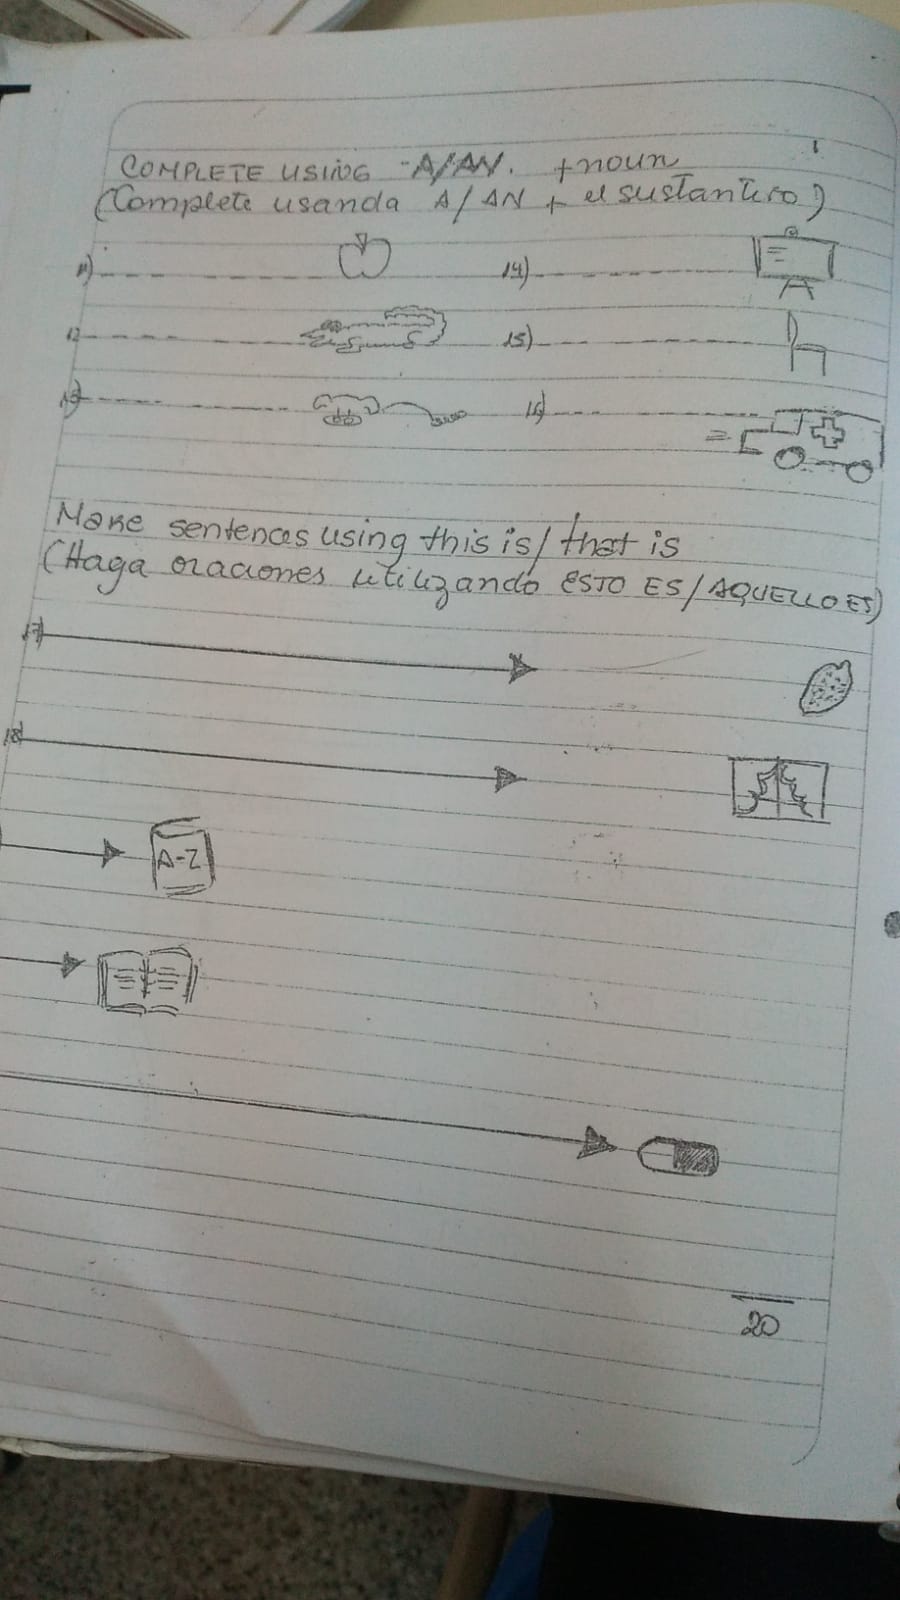 COMPLETE USING A/AN. + noun
(Complete usanda A/AN + el sustantivo)
11)
14)
12
15)
13)
16)
Make sentences using this is/that is
(Haga oraciones utilizando ESTO ES/AQUELLO ES)
17)
18)
A-Z
20